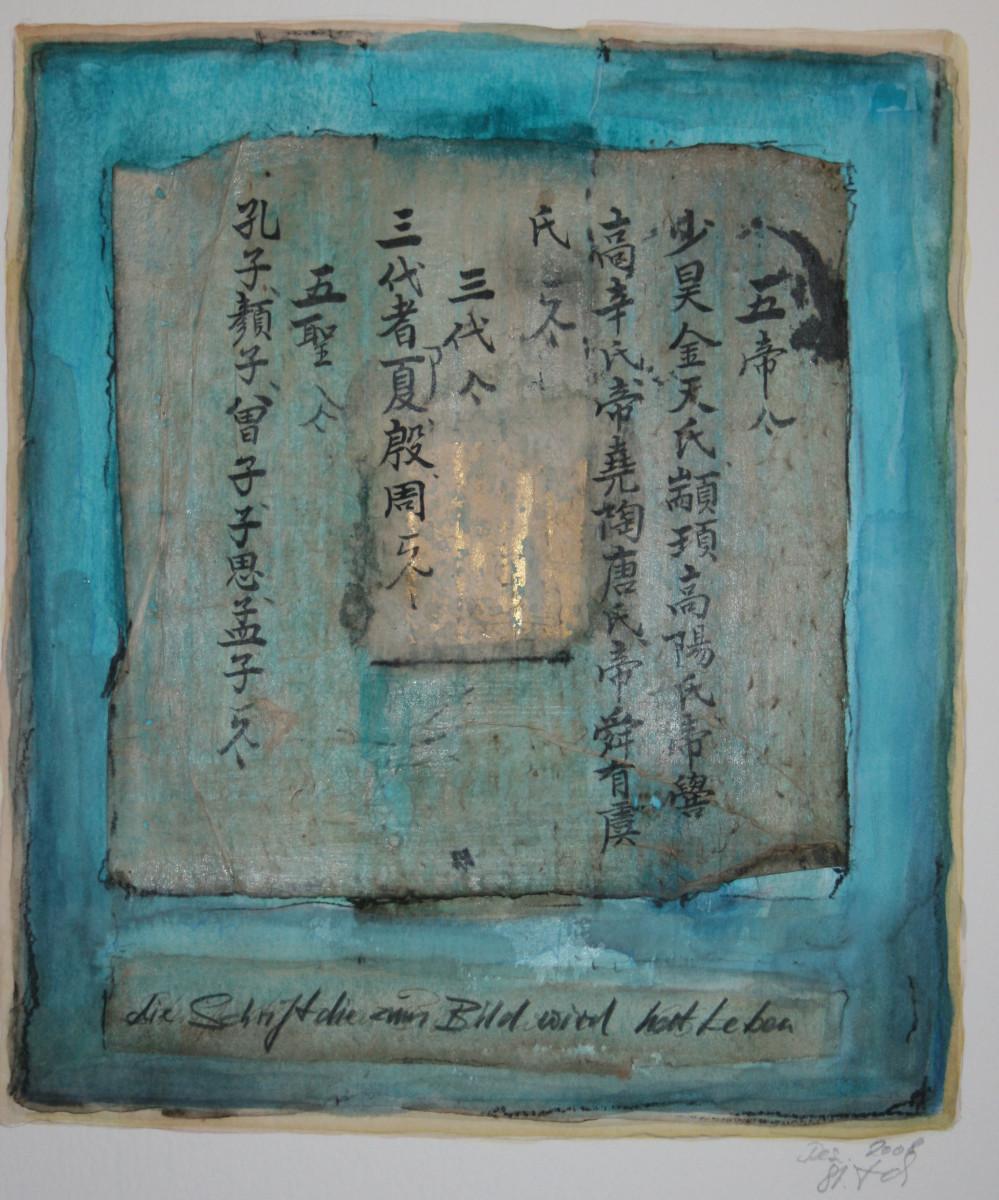 五帝
少昊金天氏顓頊高陽氏帝嚳
高辛氏帝堯陶唐氏帝舜有虞
氏
三代
三代者夏殷周
五聖
孔子顔子曾子子思孟子
die Schrift die zum Bild wird hat Leben
Dez. 2008